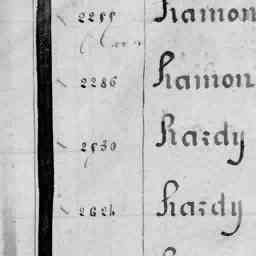 2255 Hamon
2286 Hamon
2530 Hardy
2624 Hardy